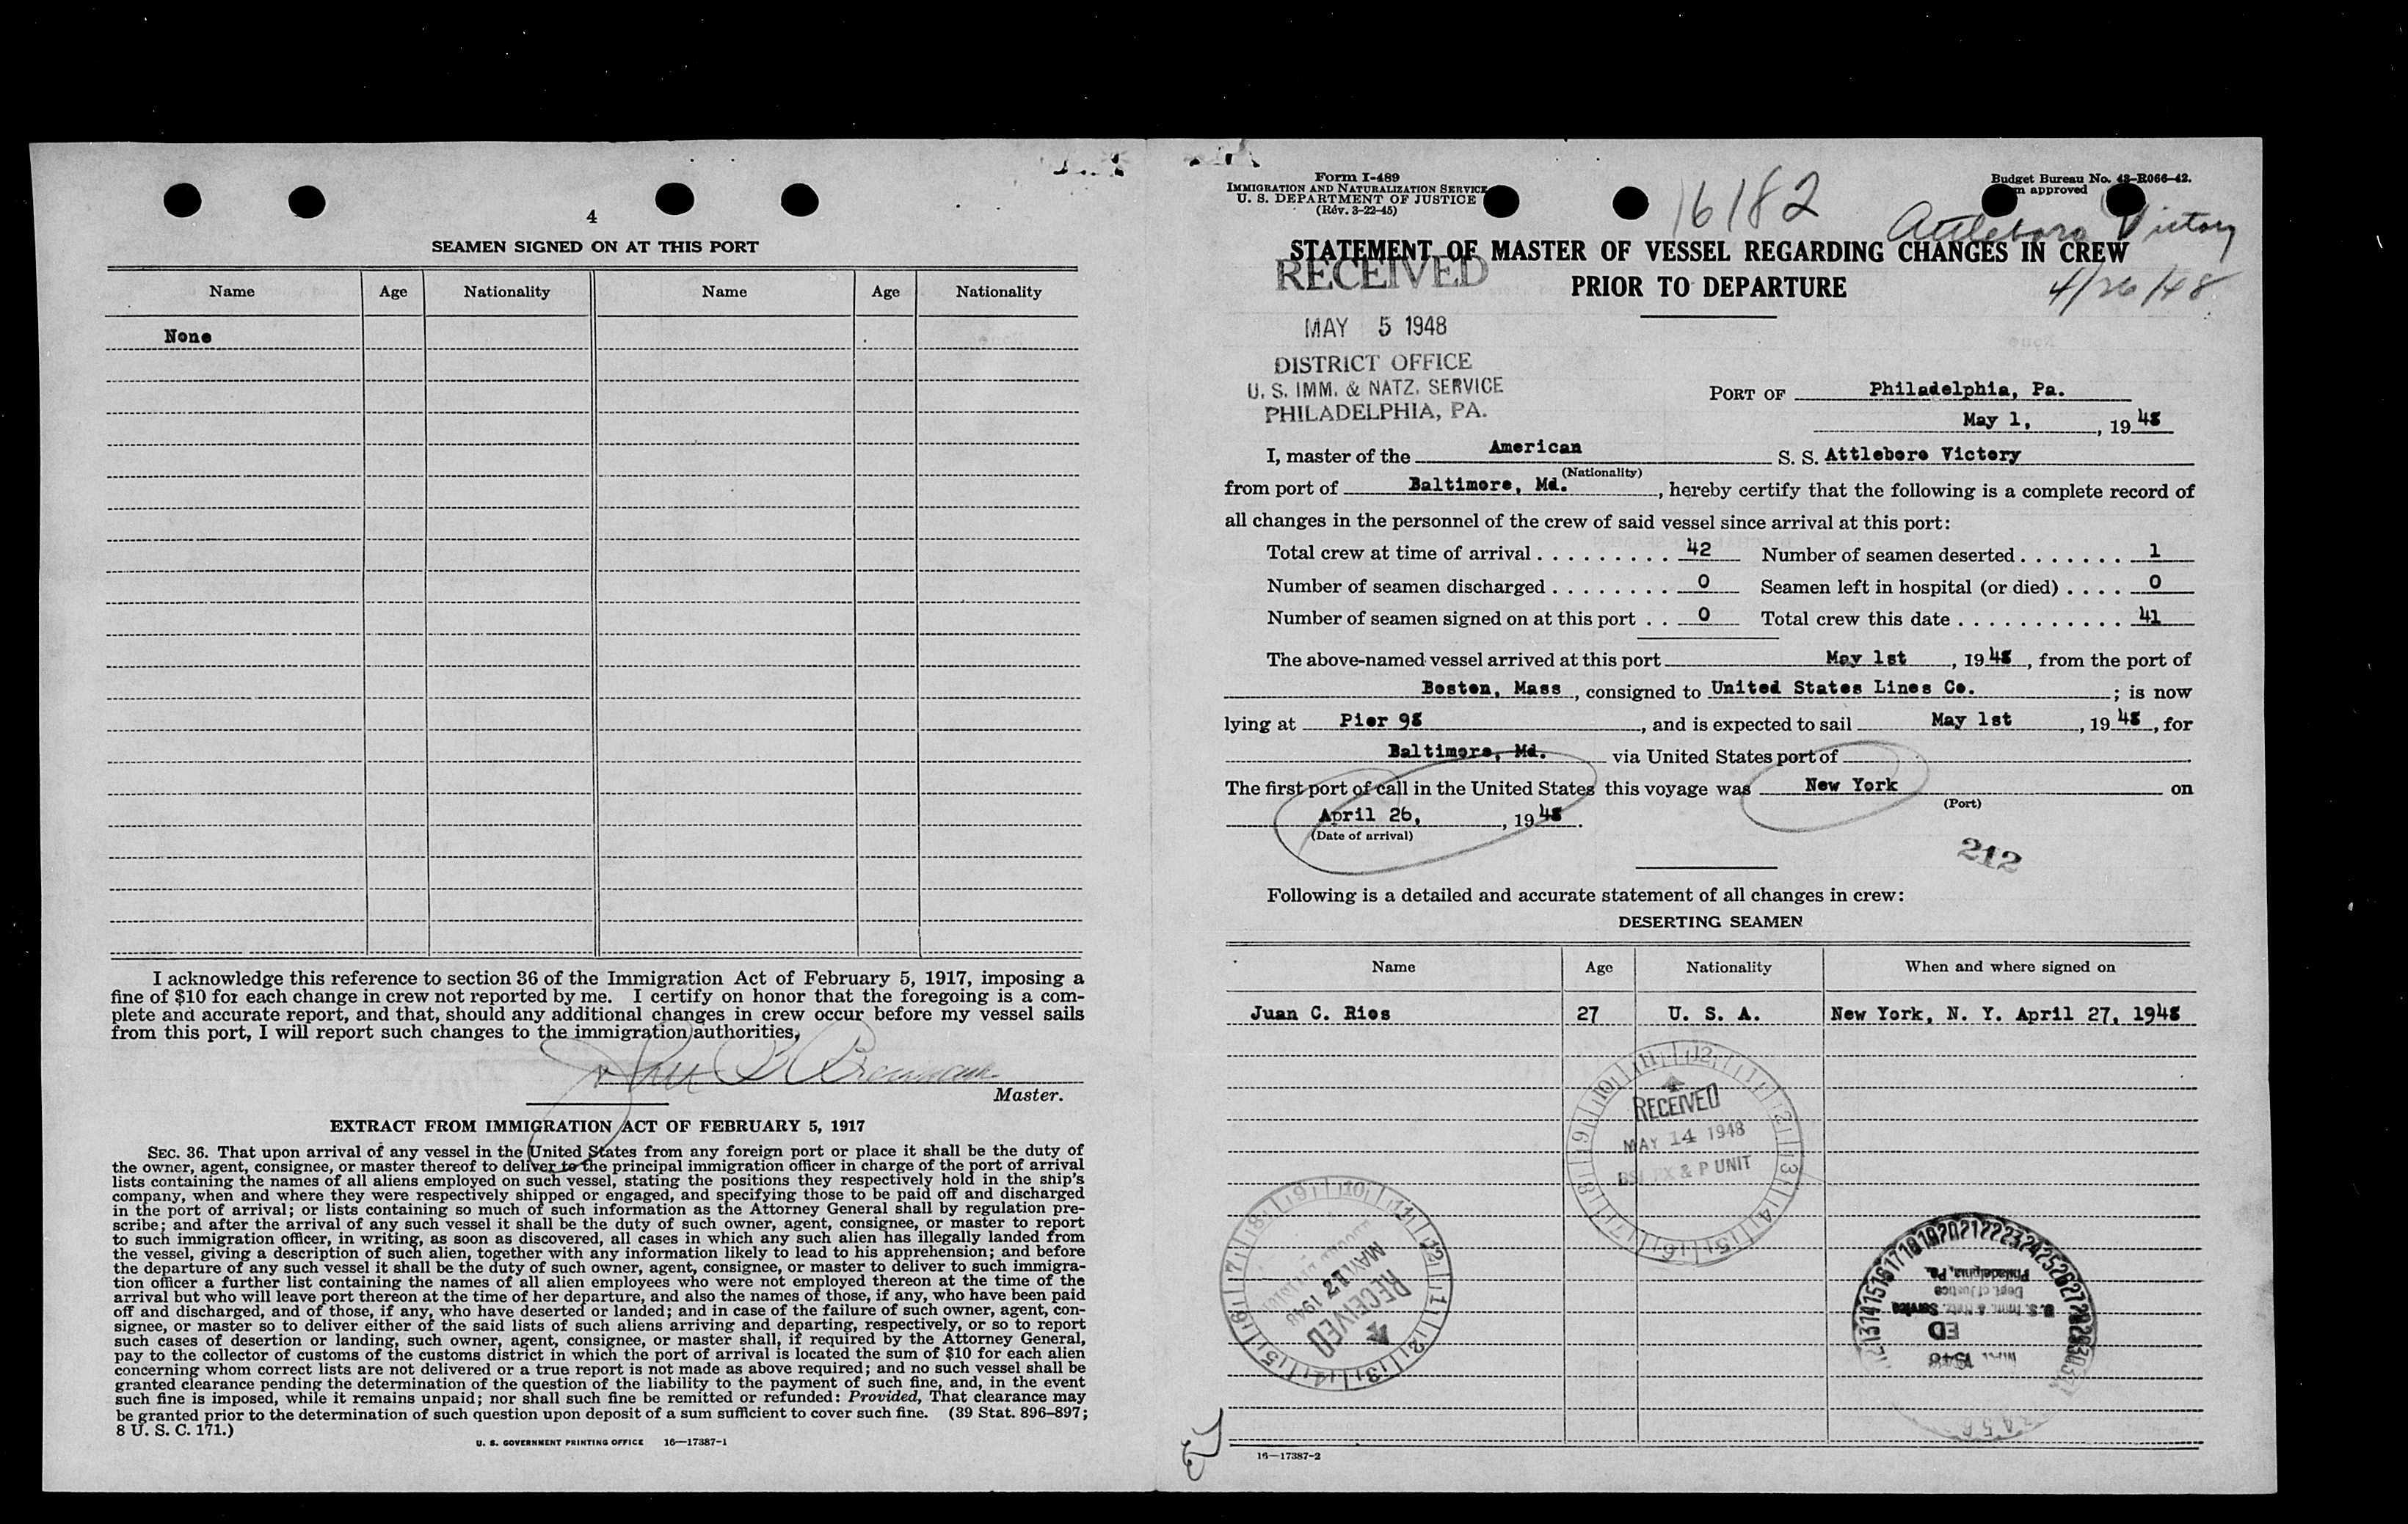 4
SEAMEN SIGNED ON AT THIS PORT
Name Age Nationality Name Age Nationality
None
I acknowledge this reference to section 36 of the Immigration Act of February 5, 1917, imposing a
fine of $10 for each change in crew not reported by me. I certify on honor that the foregoing is a com-
plete and accurate report, and that, should any additional changes in crew occur before my vessel sails
from this port, I will report such changes to the immigration authorities,
Master.
EXTRACT FROM IMMIGRATION ACT OF FEBRUARY 5, 1917
SEC. 36. That upon arrival of any vessel in the United States from any foreign port or place it shall be the duty of
the owner, agent, consignee, or master thereof to deliver to the principal immigration officer in charge of the port of arrival
lists containing the names of all aliens employed on such vessel, stating the positions they respectively hold in the ship's
company, when and where they were respectively shipped or engaged, and specifying those to be paid off and discharged
in the port of arrival; or lists containing so much of such information as the Attorney General shall by regulation pre-
scribe; and after the arrival of any such vessel it shall be the duty of such owner, agent, consignee, or master to report
to such immigration officer, in writing, as soon as discovered, all cases in which any such alien has illegally landed from
the vessel, giving a description of such alien, together with any information likely to lead to his apprehension; and before
the departure of any such vessel it shall be the duty of such owner, agent, consignee, or master to deliver to such immigra-
tion officer a further list containing the names of all alien employees who were not employed thereon at the time of the
arrival but who will leave port thereon at the time of her departure, and also the names of those, if any, who have been paid
off and discharged, and of those, if any, who have deserted or landed; and in case of the failure of such owner, agent, con-
signee, or master so to deliver either of the said lists of such aliens arriving and departing, respectively, or so to report
such cases of desertion or landing, such owner, agent, consignee, or master shall, if required by the Attorney General,
pay to the collector of customs of the customs district in which the port of arrival is located the sum of $10 for each alien
concerning whom correct lists are not delivered or a true report is not made as above required; and no such vessel shall be
granted clearance pending the determination of the question of the liability to the payment of such fine, and, in the event
such fine is imposed, while it remains unpaid; nor shall such fine be remitted or refunded: Provided, That clearance may
be granted prior to the determination of such question upon deposit of a sum sufficient to cover such fine. (39 Stat. 896–897;
8 U. S. C. 171.)
U. S. GOVERNMENT PRINTING OFFICE 16—17387-1
Form I-489
IMMIGRATION AND NATURALIZATION SERVICE
U. S. DEPARTMENT OF JUSTICE
(Rev. 3-22-45)
Budget Bureau No. 43-R066-42.
approved
16182
Attleboro Victory
4/26/48
STATEMENT OF MASTER OF VESSEL REGARDING CHANGES IN CREW
PRIOR TO DEPARTURE
RECEIVED
MAY 5 1948
DISTRICT OFFICE
U. S. IMM. & NATZ. SERVICE
PHILADELPHIA, PA.
PORT OF Philadelphia, Pa.
May 1, , 19 48
I, master of the American S. S. Attleboro Victory
(Nationality)
from port of Baltimore, Md. , hereby certify that the following is a complete record of
all changes in the personnel of the crew of said vessel since arrival at this port:
Total crew at time of arrival 42 Number of seamen deserted 1
Number of seamen discharged 0 Seamen left in hospital (or died) 0
Number of seamen signed on at this port 0 Total crew this date 41
The above-named vessel arrived at this port May 1st , 19 48 , from the port of
Boston, Mass , consigned to United States Lines Co. ; is now
lying at Pier 98 , and is expected to sail May 1st , 19 48 , for
Baltimore, Md. via United States port of
The first port of call in the United States this voyage was New York on
(Port)
April 26, , 19 48 .
(Date of arrival)
212
Following is a detailed and accurate statement of all changes in crew:
DESERTING SEAMEN
Name Age Nationality When and where signed on
Juan C. Rios 27 U. S. A. New York, N. Y. April 27, 1948
RECEIVED
MAY 14 1948
& P UNIT
RECEIVED
1948
Philadelphia, Pa.
Dept. of Justice
U. S. Immi. & Natz. Service
ED
1948
16—17387-2